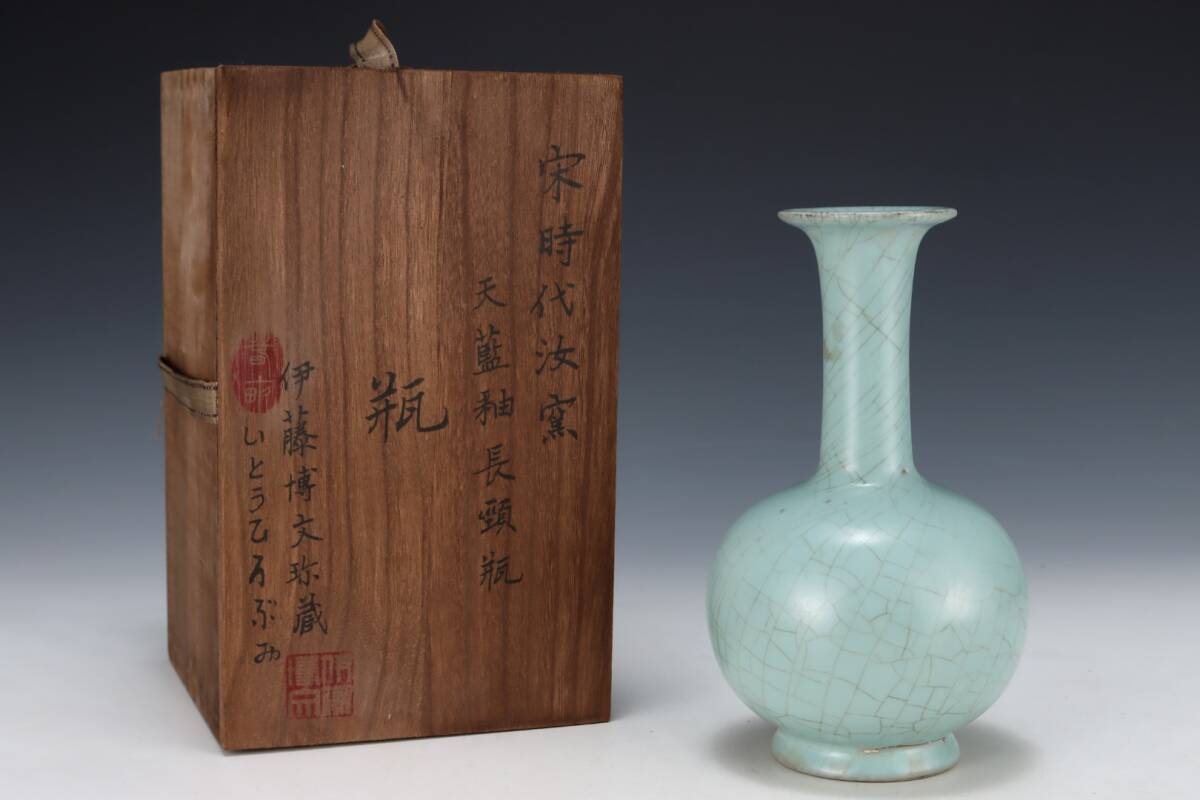 宋時代汝窯
天藍釉長頸瓶
瓶
伊藤博文珍蔵
いとうひろぶみ
春畝